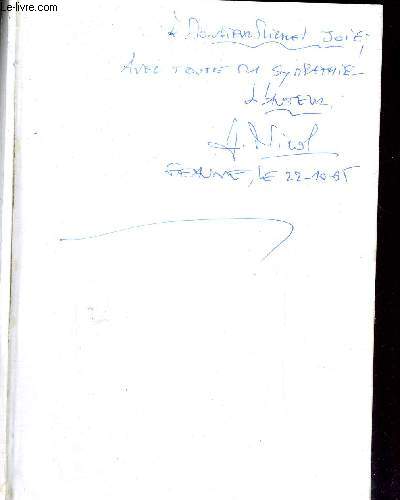 Le-livre.com
à Monsieur Michel JOIE,
AVEC TOUTE MA SYMPATHIE_
L'AUTEUR.
A. Nicol
LE 22-10-85